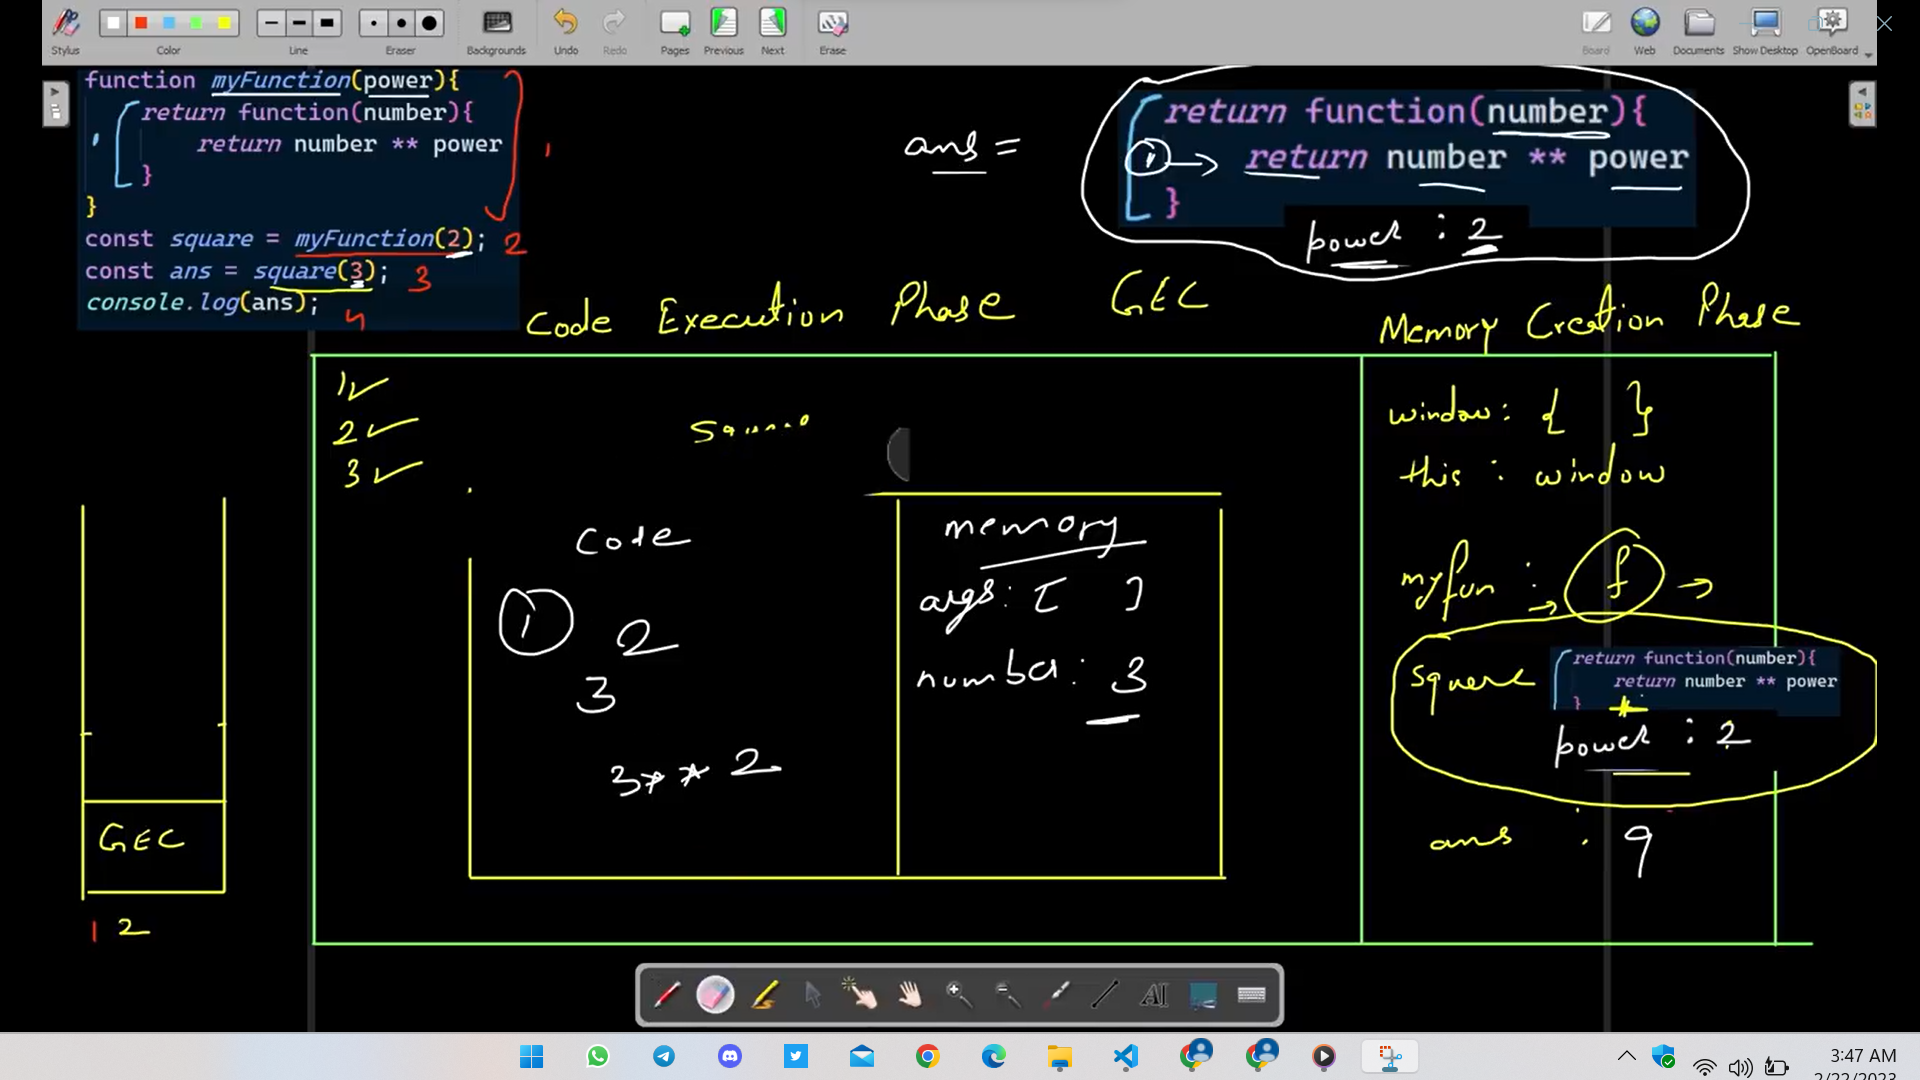 Stylus
Color
Line
Eraser
Backgrounds
Undo
Redo
Pages
Previous
Next
Erase
Board
Web
Documents
Show Desktop
OpenBoard
function myFunction(power){
return function(number){
return number ** power
}
}
const square = myFunction(2);
const ans = square(3);
console.log(ans);
1
2
3
4
ans =
return function(number){
1 return number ** power
}
power : 2
Code Execution Phase GEC
Memory Creation Phase
1
2
3
code
1 2
3
3** 2
memory
args: [ ]
number: 3
window: { }
this : window
myfun : f
square
return function(number){
return number ** power
}
power : 2
ans : 9
GEC
1 2
AI
3:47 AM
2/22/2023